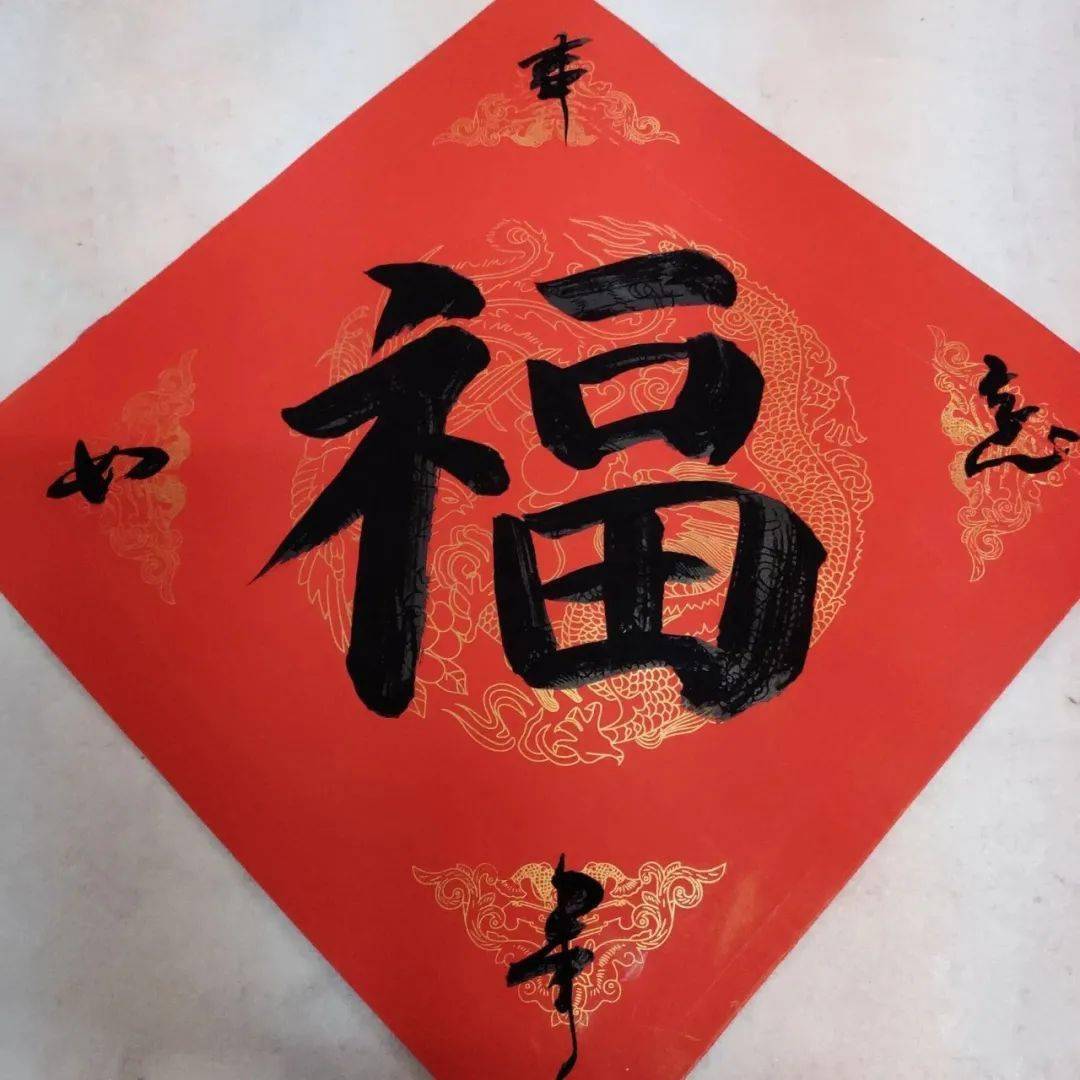 事
福
如
意
事